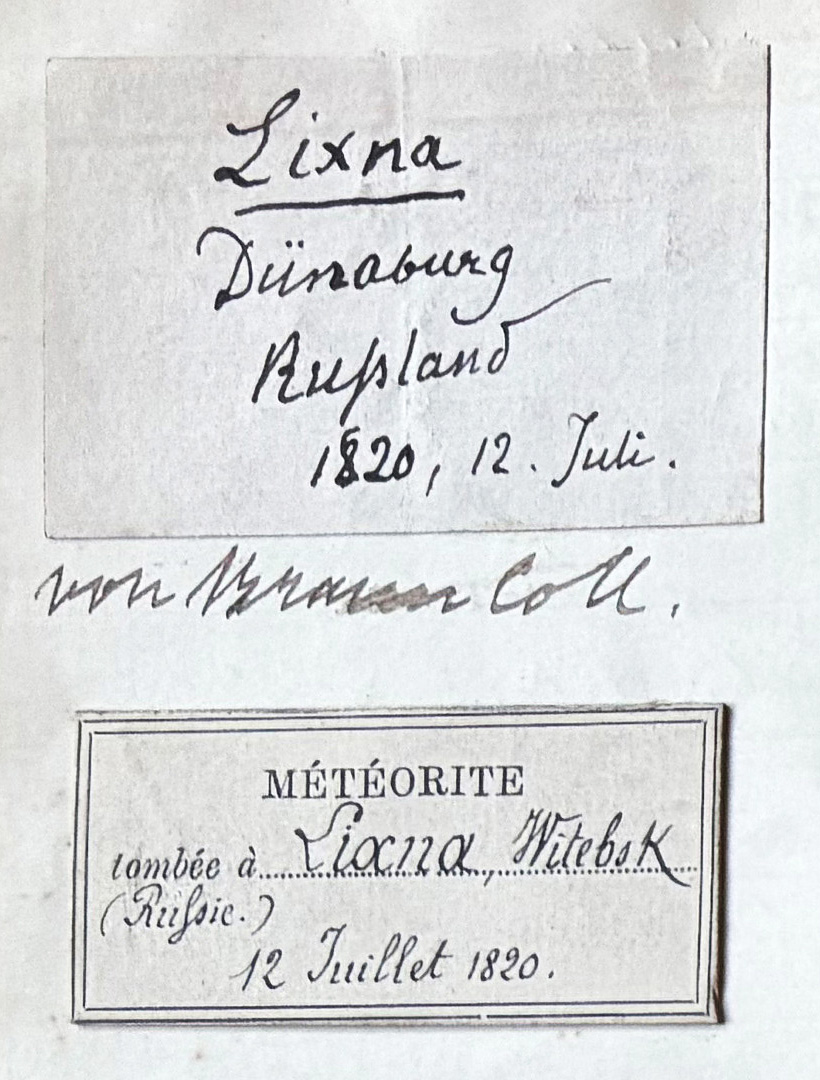 Lixna
Dünaburg
Rußland
1820, 12. Juli.
von Braun Coll.
MÉTÉORITE
tombée à Lixna, Witebsk
(Rußie.)
12 Juillet 1820.